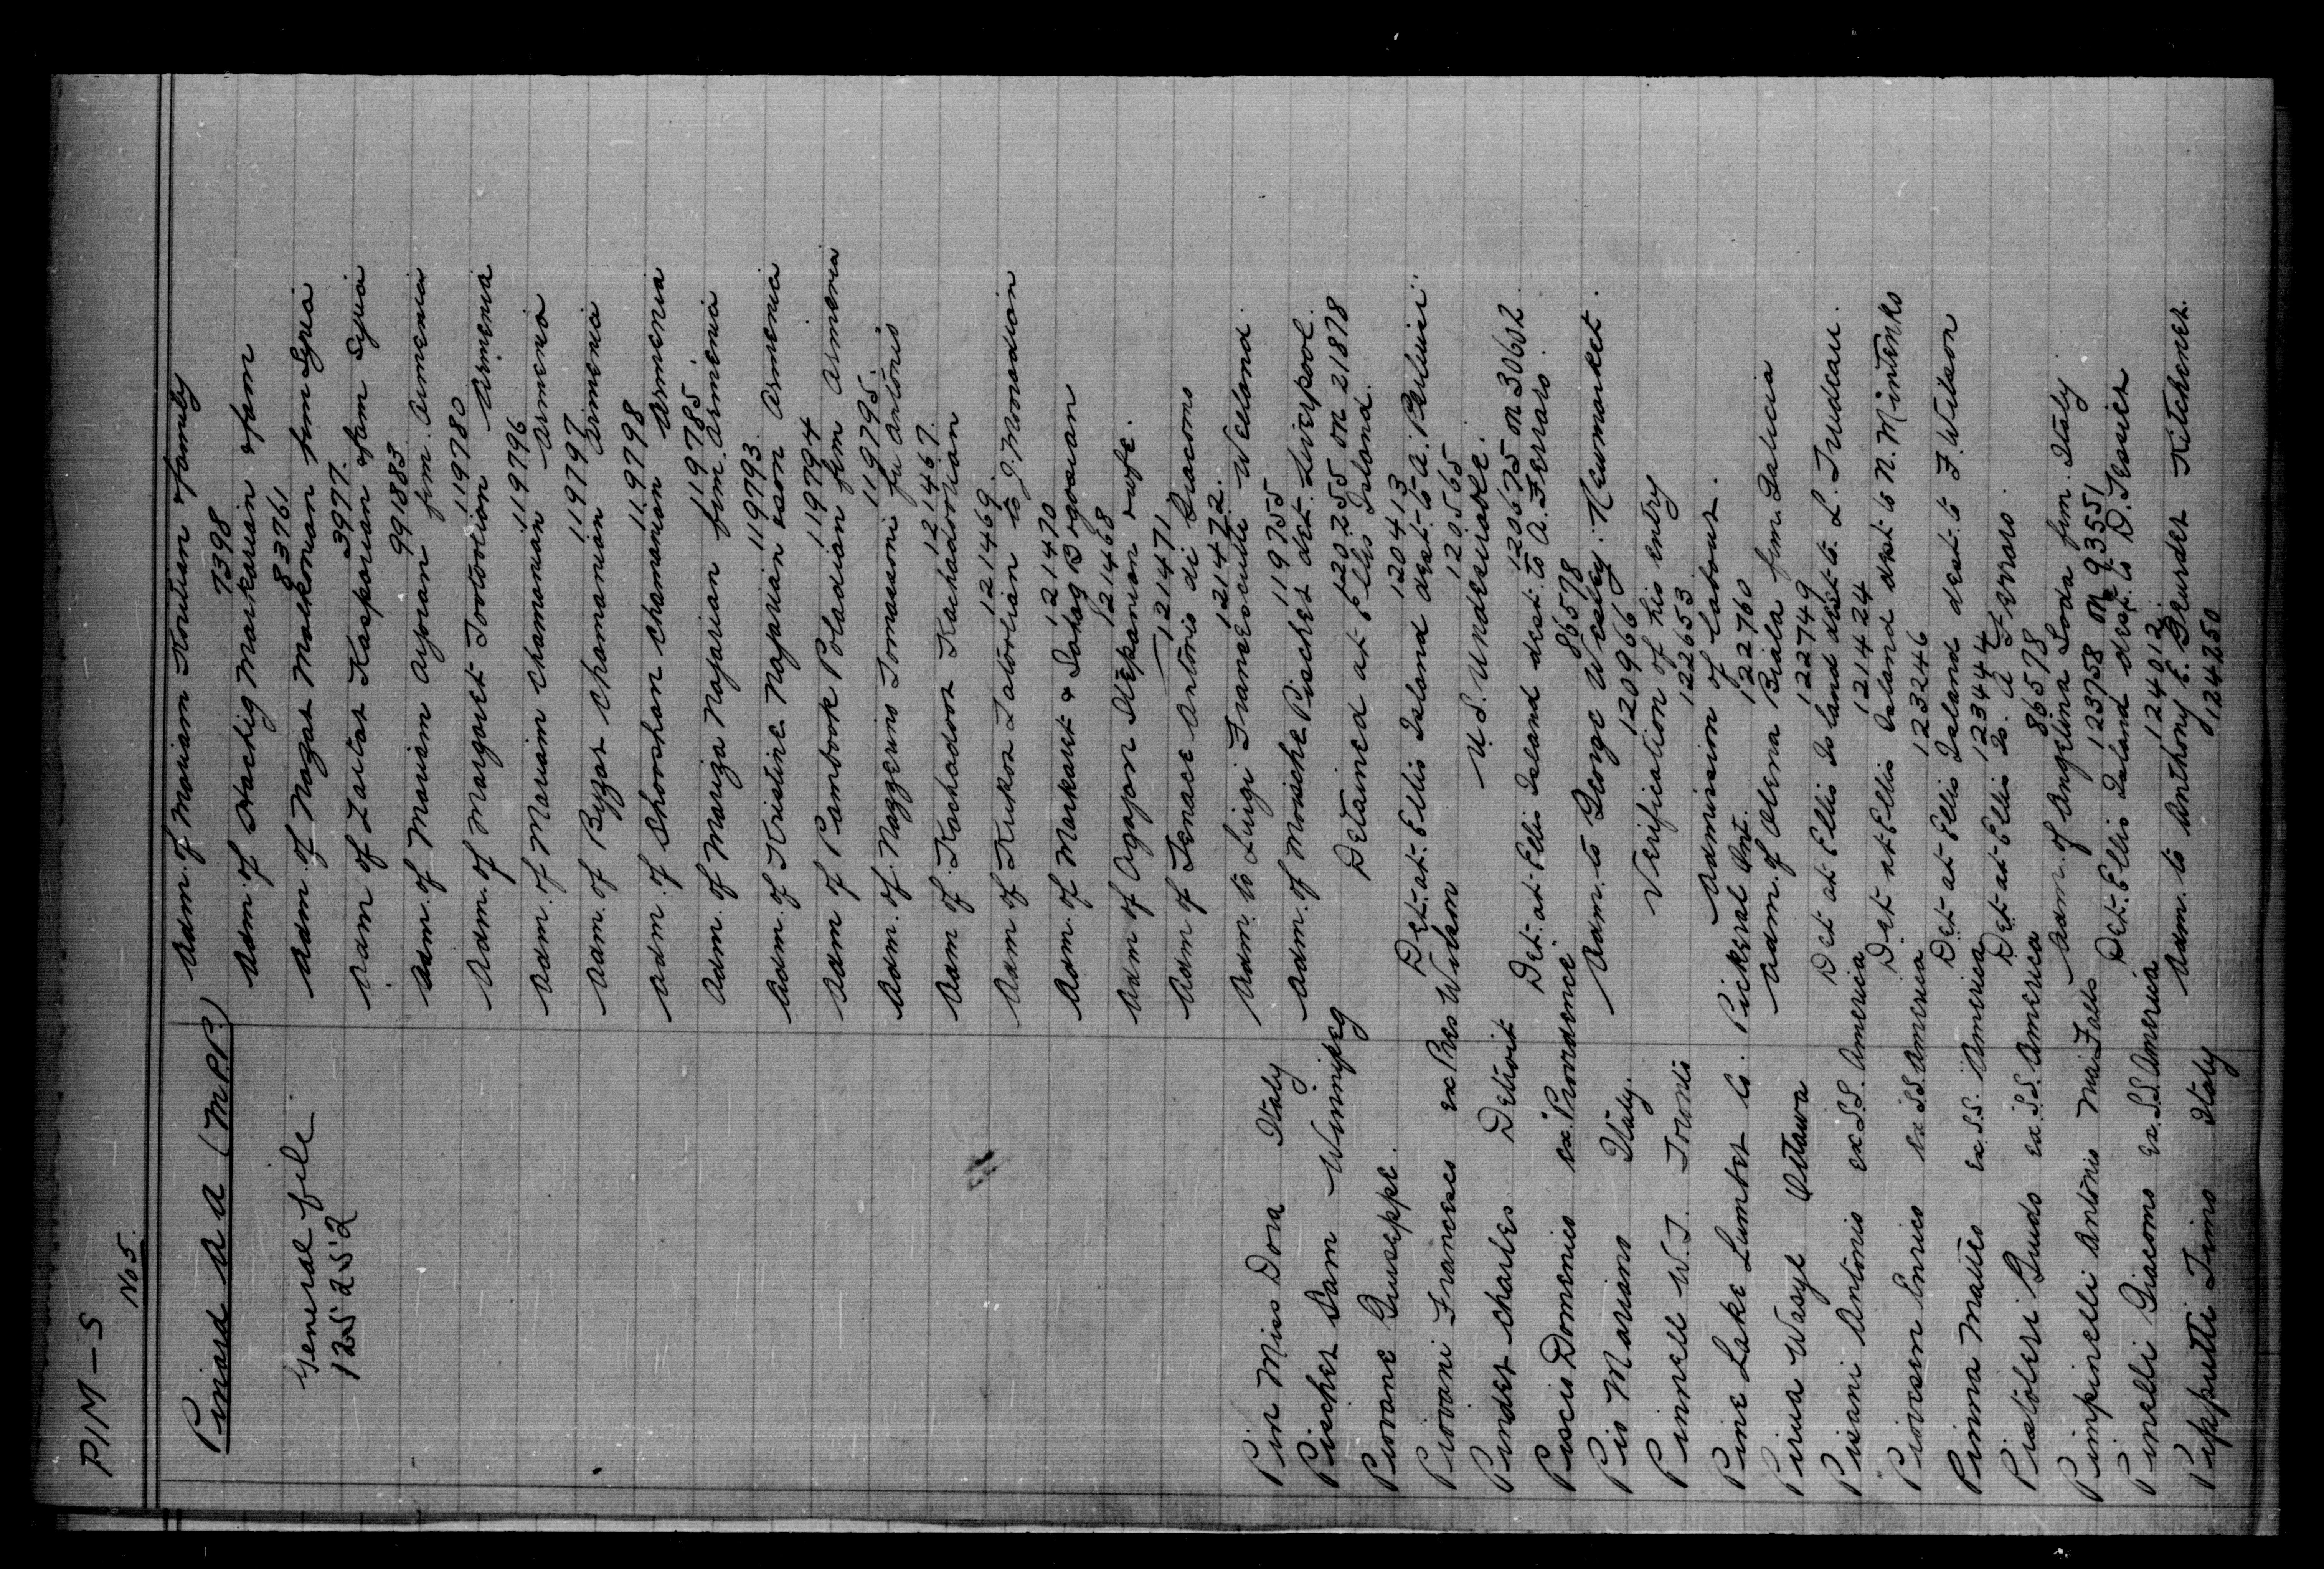 PIM - S
No 5.
Pinard A A (M.P.P.)
General file
125252
Adm. of Mariam Koulian & family
7398
Adm. of Hachig Markarian & fam
83761
Adm. of Nazar Malkonian from Syria
3977.
Adm of Zartar Kasparian & fam Syria
991883
Adm. of Mariam Ayvoian frm. Armenia
119780
Adm. of Margaret Tootoolion Armenia
119796
Adm. of Mariam Chamanian Armenia
119797
Adm. of Byzar Chamanian Armenia
119798
Adm. of Shooshan Chamanian Armenia
119785
Adm. of Mariza Najarian frm. Armenia
119793
Adm. of Kristine Najarian & son Armenia
119794
Adm of Pambook Poladian frm Armenia
119795.
Adm. of Nazzerino Tomassoni fu Antonio
121467.
Adm of Kachadoor Kachadoorian
121469.
Adm of Kirkor Zatorlian to J. Mooradian
121470
Adm. of Markaret & Sahag Bogosian
121468
Adm of Agajon Stepanian & wife.
121471
Adm of Tenace Antonio di Giacomo
121472.
Pirt Miss Dora Italy Adm. to Luigi Franescutti Welland.
119755
Pischer Sam Winnipeg Adm. of Moische Pischer det. Liverpool.
120255 on 21878
Piovane Giuseppe. Detained at Ellis Island.
120413
Piovani Francesco ex Pres Wilson Det. at Ellis Island dest. to A. Paluici.
120565
Pinder Charles Detroit U.S. Undesirable.
120675 on 30602
Piscis Domenico ex Providence Det. at Ellis Island dest. to A. Ferraro.
86578
Pio Mariano Italy. Adm. to George Wesley. Newmarket.
120966
Pinnell W.J. Toronto Verification of his entry
122653
Pine Lake Lumber Co. Pickeral Ont. Admission of labour.
122760
Pirua Wasyl Ottawa Adm. of Olena Biala frm. Galicia
122749
Pisani Antonio ex S.S. America Det at Ellis Island dest to. L. Trudeau.
121424
Piovesen Enrico ex S.S. America Det. at Ellis Island dest to N. Mintenko
123246
Pinna Matteo ex. S.S. America Det at Ellis Island dest. to F. Wilson
123444
Pistoleri Guido ex. S.S. America Det. at Ellis Is. A Ferraro.
86578
Pimpinelli Antonio Nia. Falls Adm. of Angelina Loda frm. Italy.
123758 on 93551
Pinelli Giacomo ex. S.S. America Det. Ellis Island dest. to D. Tessier
124012.
Pipputti Timo Italy Adm. to Anthony E. Gruder Kitchener.
124250